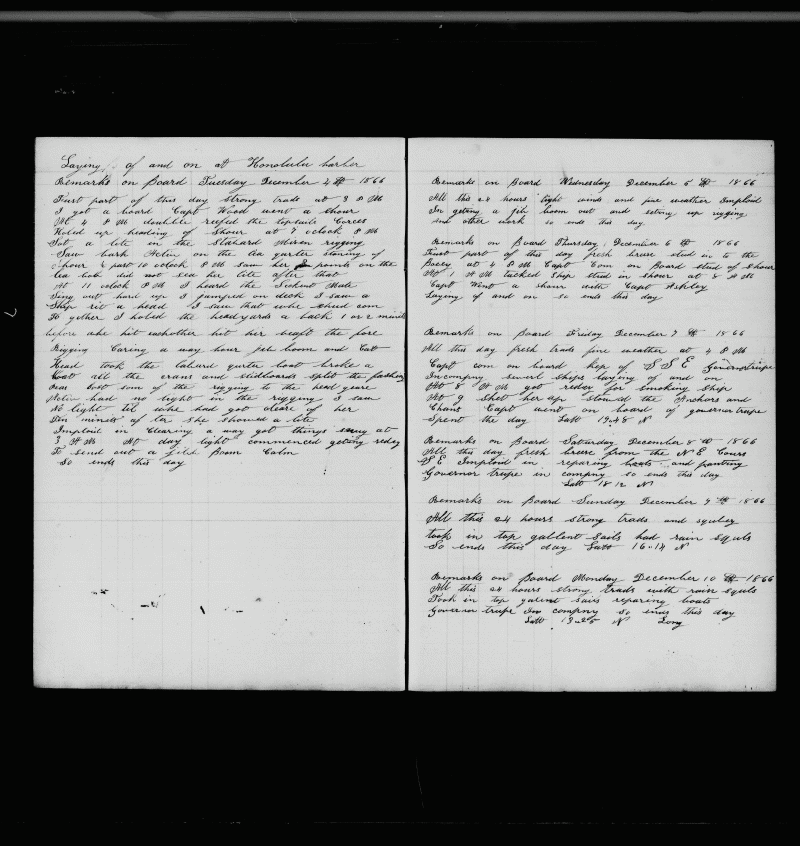 Laying of and on at Honolulu harber
Remarks on Board Tuesday December 4 th 1866
First part of this day strong trads at 3 P M
I got a board Capt Wood went a shour
At 4 P M doubble refed the topsails Corces
Holed up heading of Shour at 7 oclock P M
Sot a lite in the Starbard Misen rigging
Saw bark Active on the lea quarter standing of
shour ½ part 10 oclock P M saw her 2 points on the
lea bow did not sea her lite after that
At 11 oclock P M I heard the Second Mate
Sing out hard up I jumped on deck I saw a
Ship rit a head I saw that whe shud com
To gether I holed the headyards a back 1 or 2 minits
before whe hit eachother hit her beaft the fore
Rigging Caring a way hour jib boom and Cut
Head took the labard qurter boat broke a
Boat all the crans and slidboards split the
Peas Lost som of the rigging to the head geare
Active had no light in the rigging I saw
No light til whe had got cleare of her
Ten minits af ter she showed a lite
Imploid in Clearing a way got things at
3 A M At day light commenced geting redey
To send out a jibb Boom Calm
So ends this day
Remarks on Board Wednesday December 5 th 1866
All this 24 hours light winds and fine weather Imploid
In geting a jib boom out and seting up rigging
And other work so ends this day
Remarks on Board Thursday December 6 th 1866
First part of this day fresh brese stud in to the
at 4 P M Capt Com on Board stud of Shour
At 1 A M tacked Ship stud in Shour at 8 A M
Capt Went a shour with Capt Ashley
Laying of and on so ends this day
Remarks on Board Friday December 7 th 1866
All this day fresh trads fine weather at 4 P M
Capt com on board kep of S S E Governer trupe
In company severl Ships laying of and on
At 8 A M got redey for smoking Ship
At 9 Shet her up stowed the Anchors and
Chans Capt went on board of governer trupe
Spent the day Latt 19.48 N
Remarks on Board Saturday December 8 th 1866
All this day fresh brese from the N E Cours
S E Imploid in reparing boats and panting
Governor trupe in company so ends this day
Latt 18 12 N
Remarks on Board Sunday December 9 th 1866
All this 24 hours strong trads and squley
took in top gallent Sails had rain squls
So ends this day Latt 16.14 N
Remarks on Board Monday December 10 th 1866
All this 24 hours strong trads with rain squls
Took in top galent sails reparing boats
Governor trupe In compny so ends this day
Latt N Long